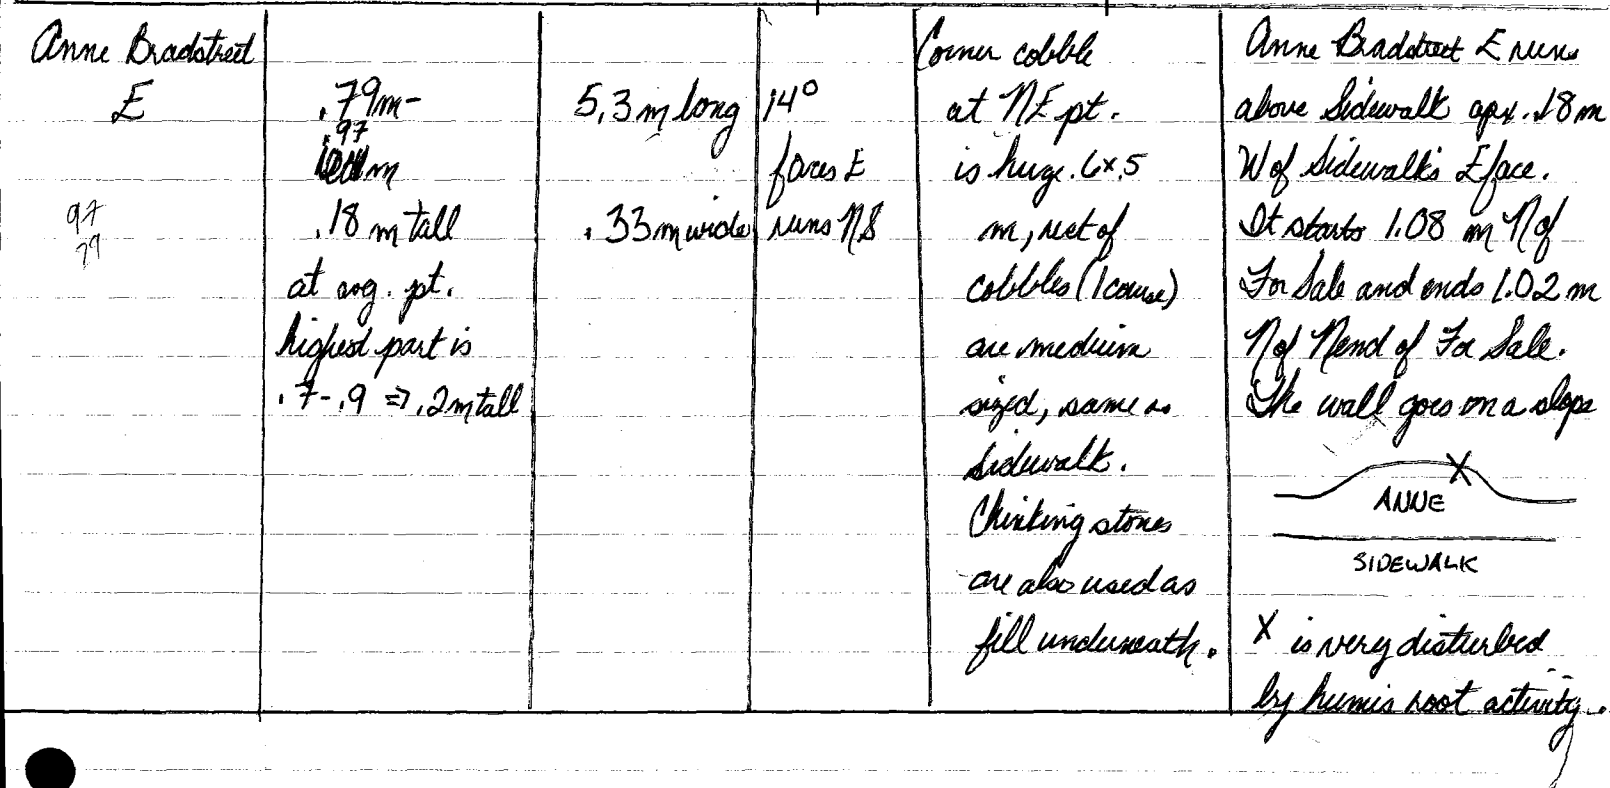 Anne Bradstreet
E
97
79
.79m-
.97
m
.18 m tall
at avg. pt.
highest part is
.7-.9 => .2m tall
5.3 m long
.33m wide
14°
faces E
runs NS
Corner cobble
at NE pt.
is huge .6x.5
m, rest of
cobbles (1 course)
are medium
sized, same as
Sidewalk.
Chinking stones
are also used as
fill underneath.
Anne Bradstreet E runs
above Sidewalk apx. .18 m
W of Sidewalk's E face.
It starts 1.08 m N of
For Sale and ends 1.02 m
N of N end of For Sale.
The wall goes on a slope
X
ANNE
SIDEWALK
X is very disturbed
by humis root activity.